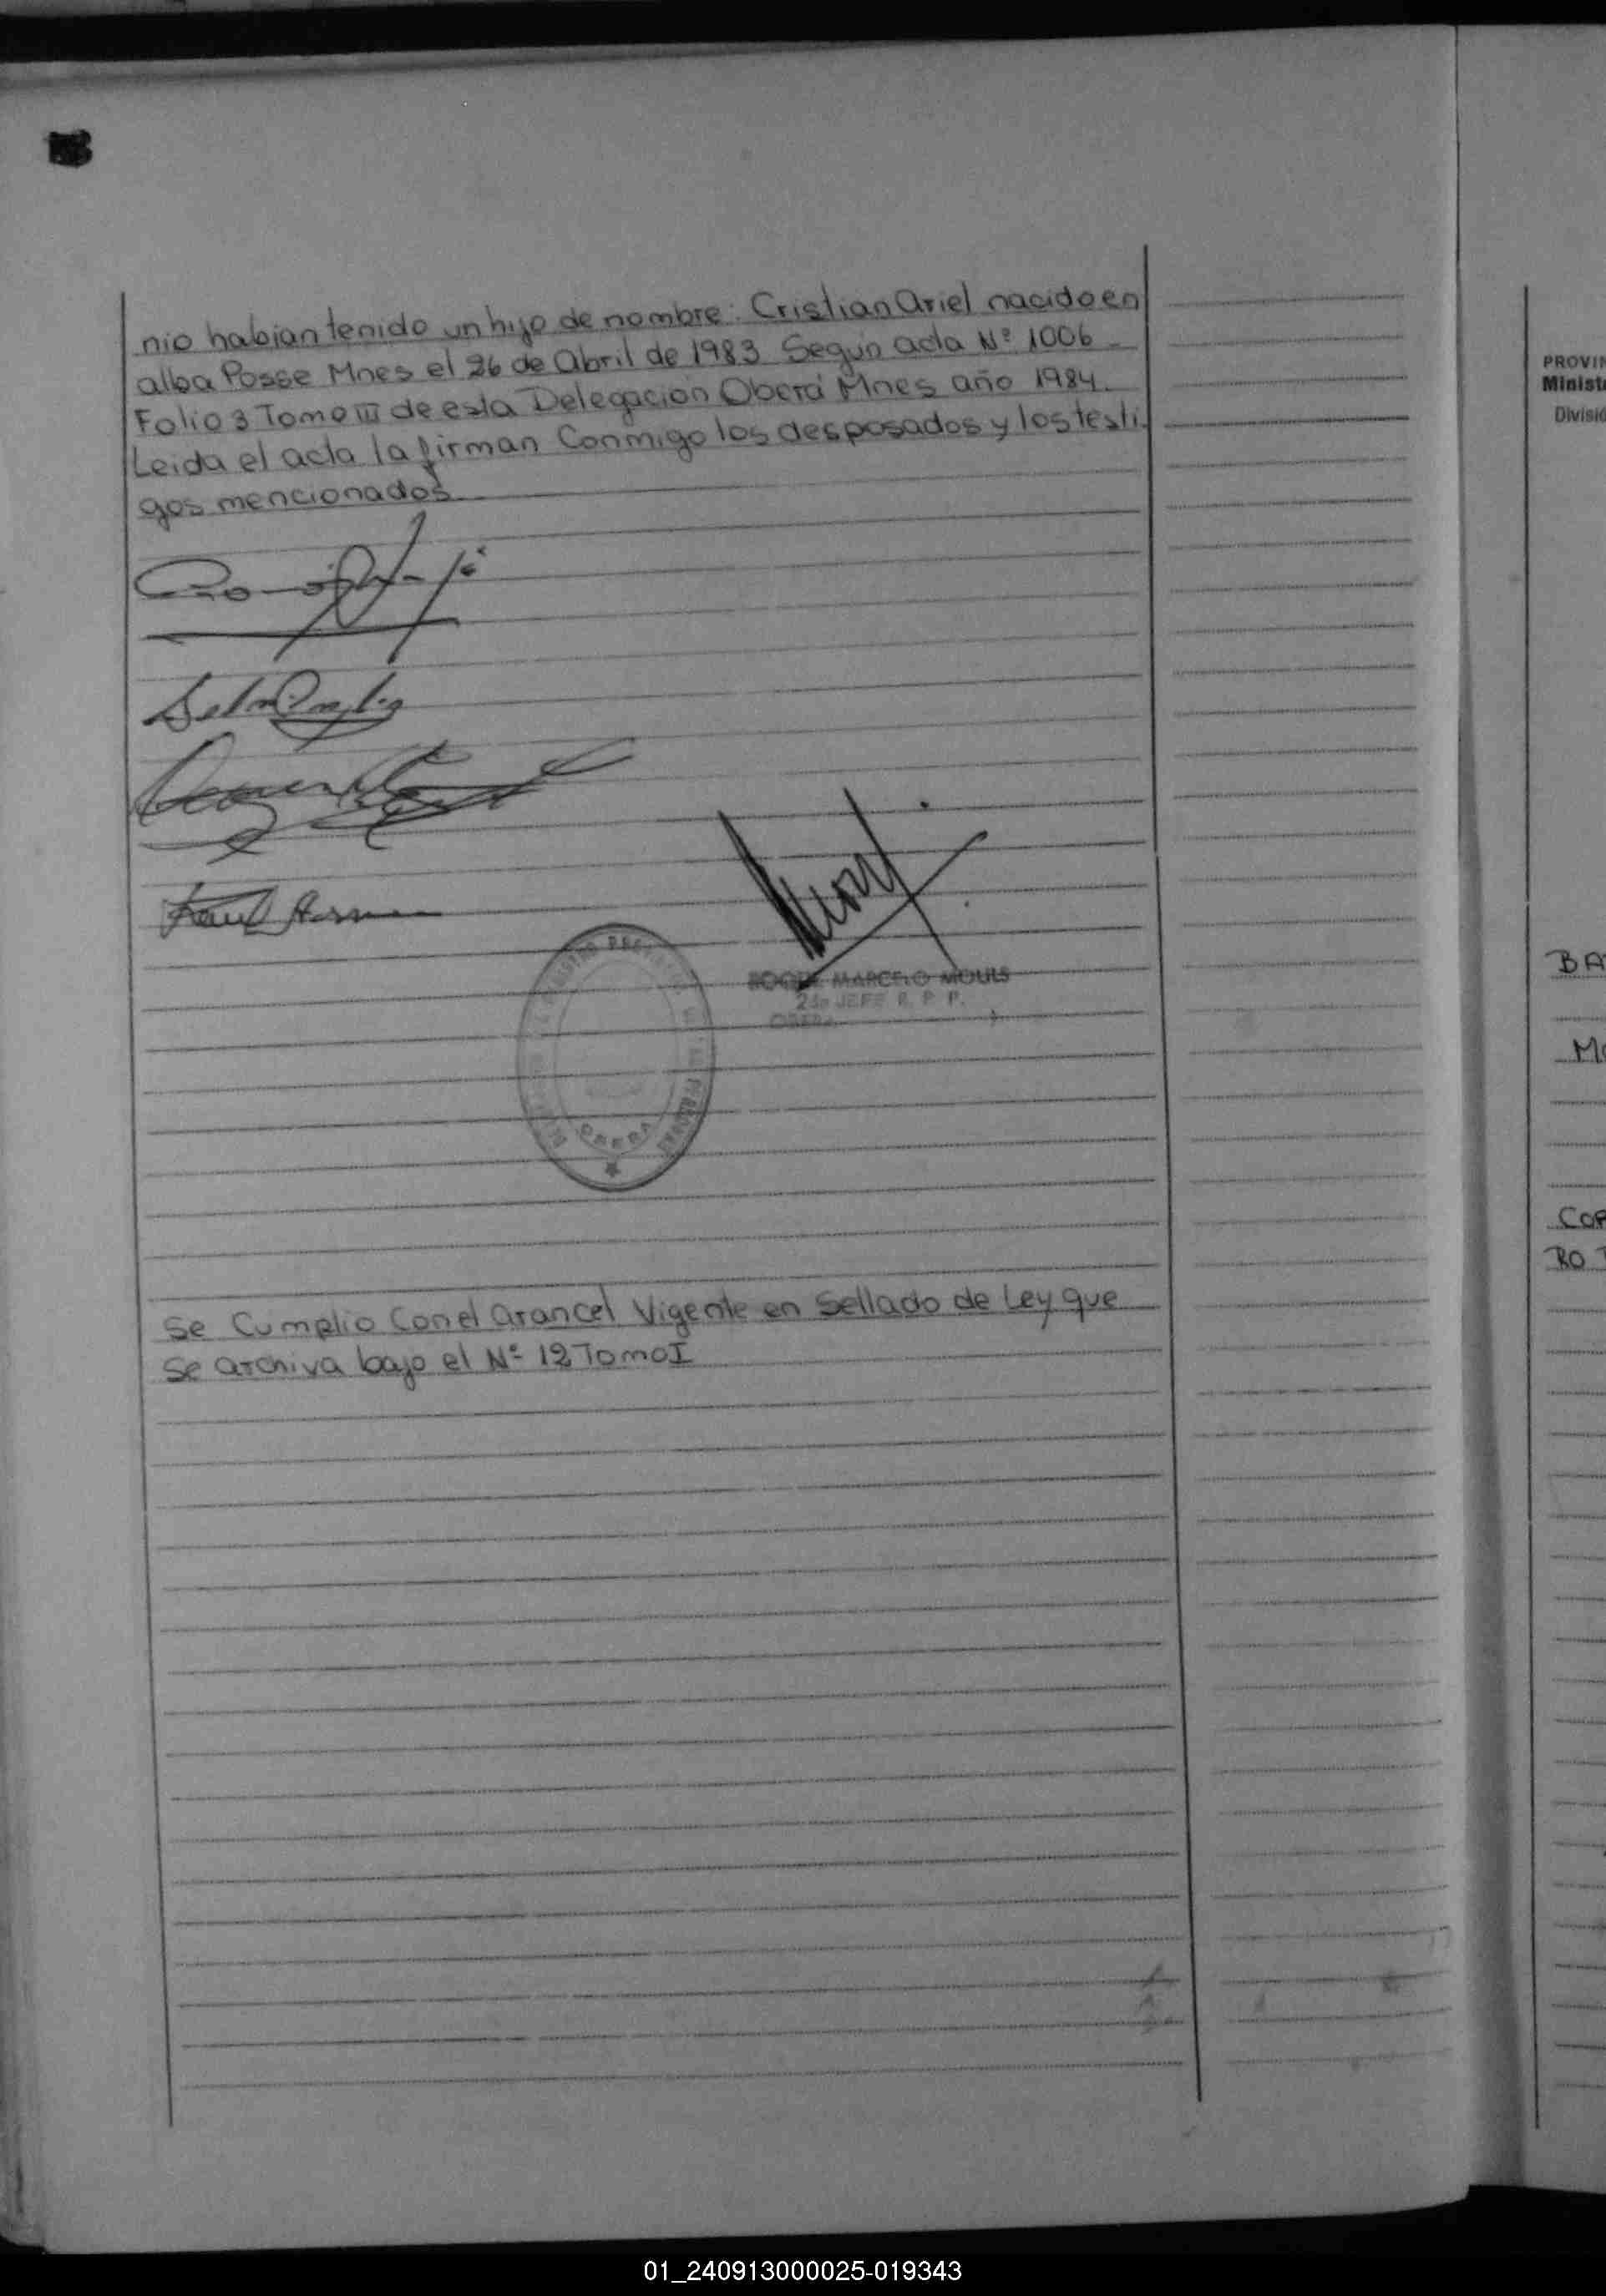 nio habian tenido un hijo de nombre: Cristian Ariel nacido en
alba Posse Mnes el 26 de Abril de 1983 Segun acta Nº 1006
Folio 3 Tomo III de esta Delegación Oberá Mnes año 1984.
Leida el acta la firman Conmigo los desposados y los testi
gos mencionados
MARCELO MOULS
2do JEFE R. P. P.
OBERA
OBERA
Se Cumplio Con el arancel Vigente en Sellado de Ley que
Se archiva bajo el Nº 12 Tomo I
PROVIN
Minist
Divisió
BA
MO
COR
RO
01_240913000025-019343